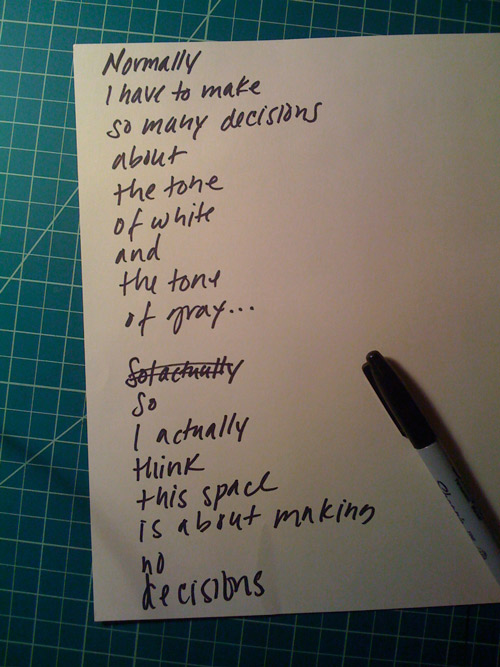 Normally
I have to make
so many decisions
about
the tone
of white
and
the tone
of gray...
So I actually
so
I actually
think
this space
is about making
no
decisions